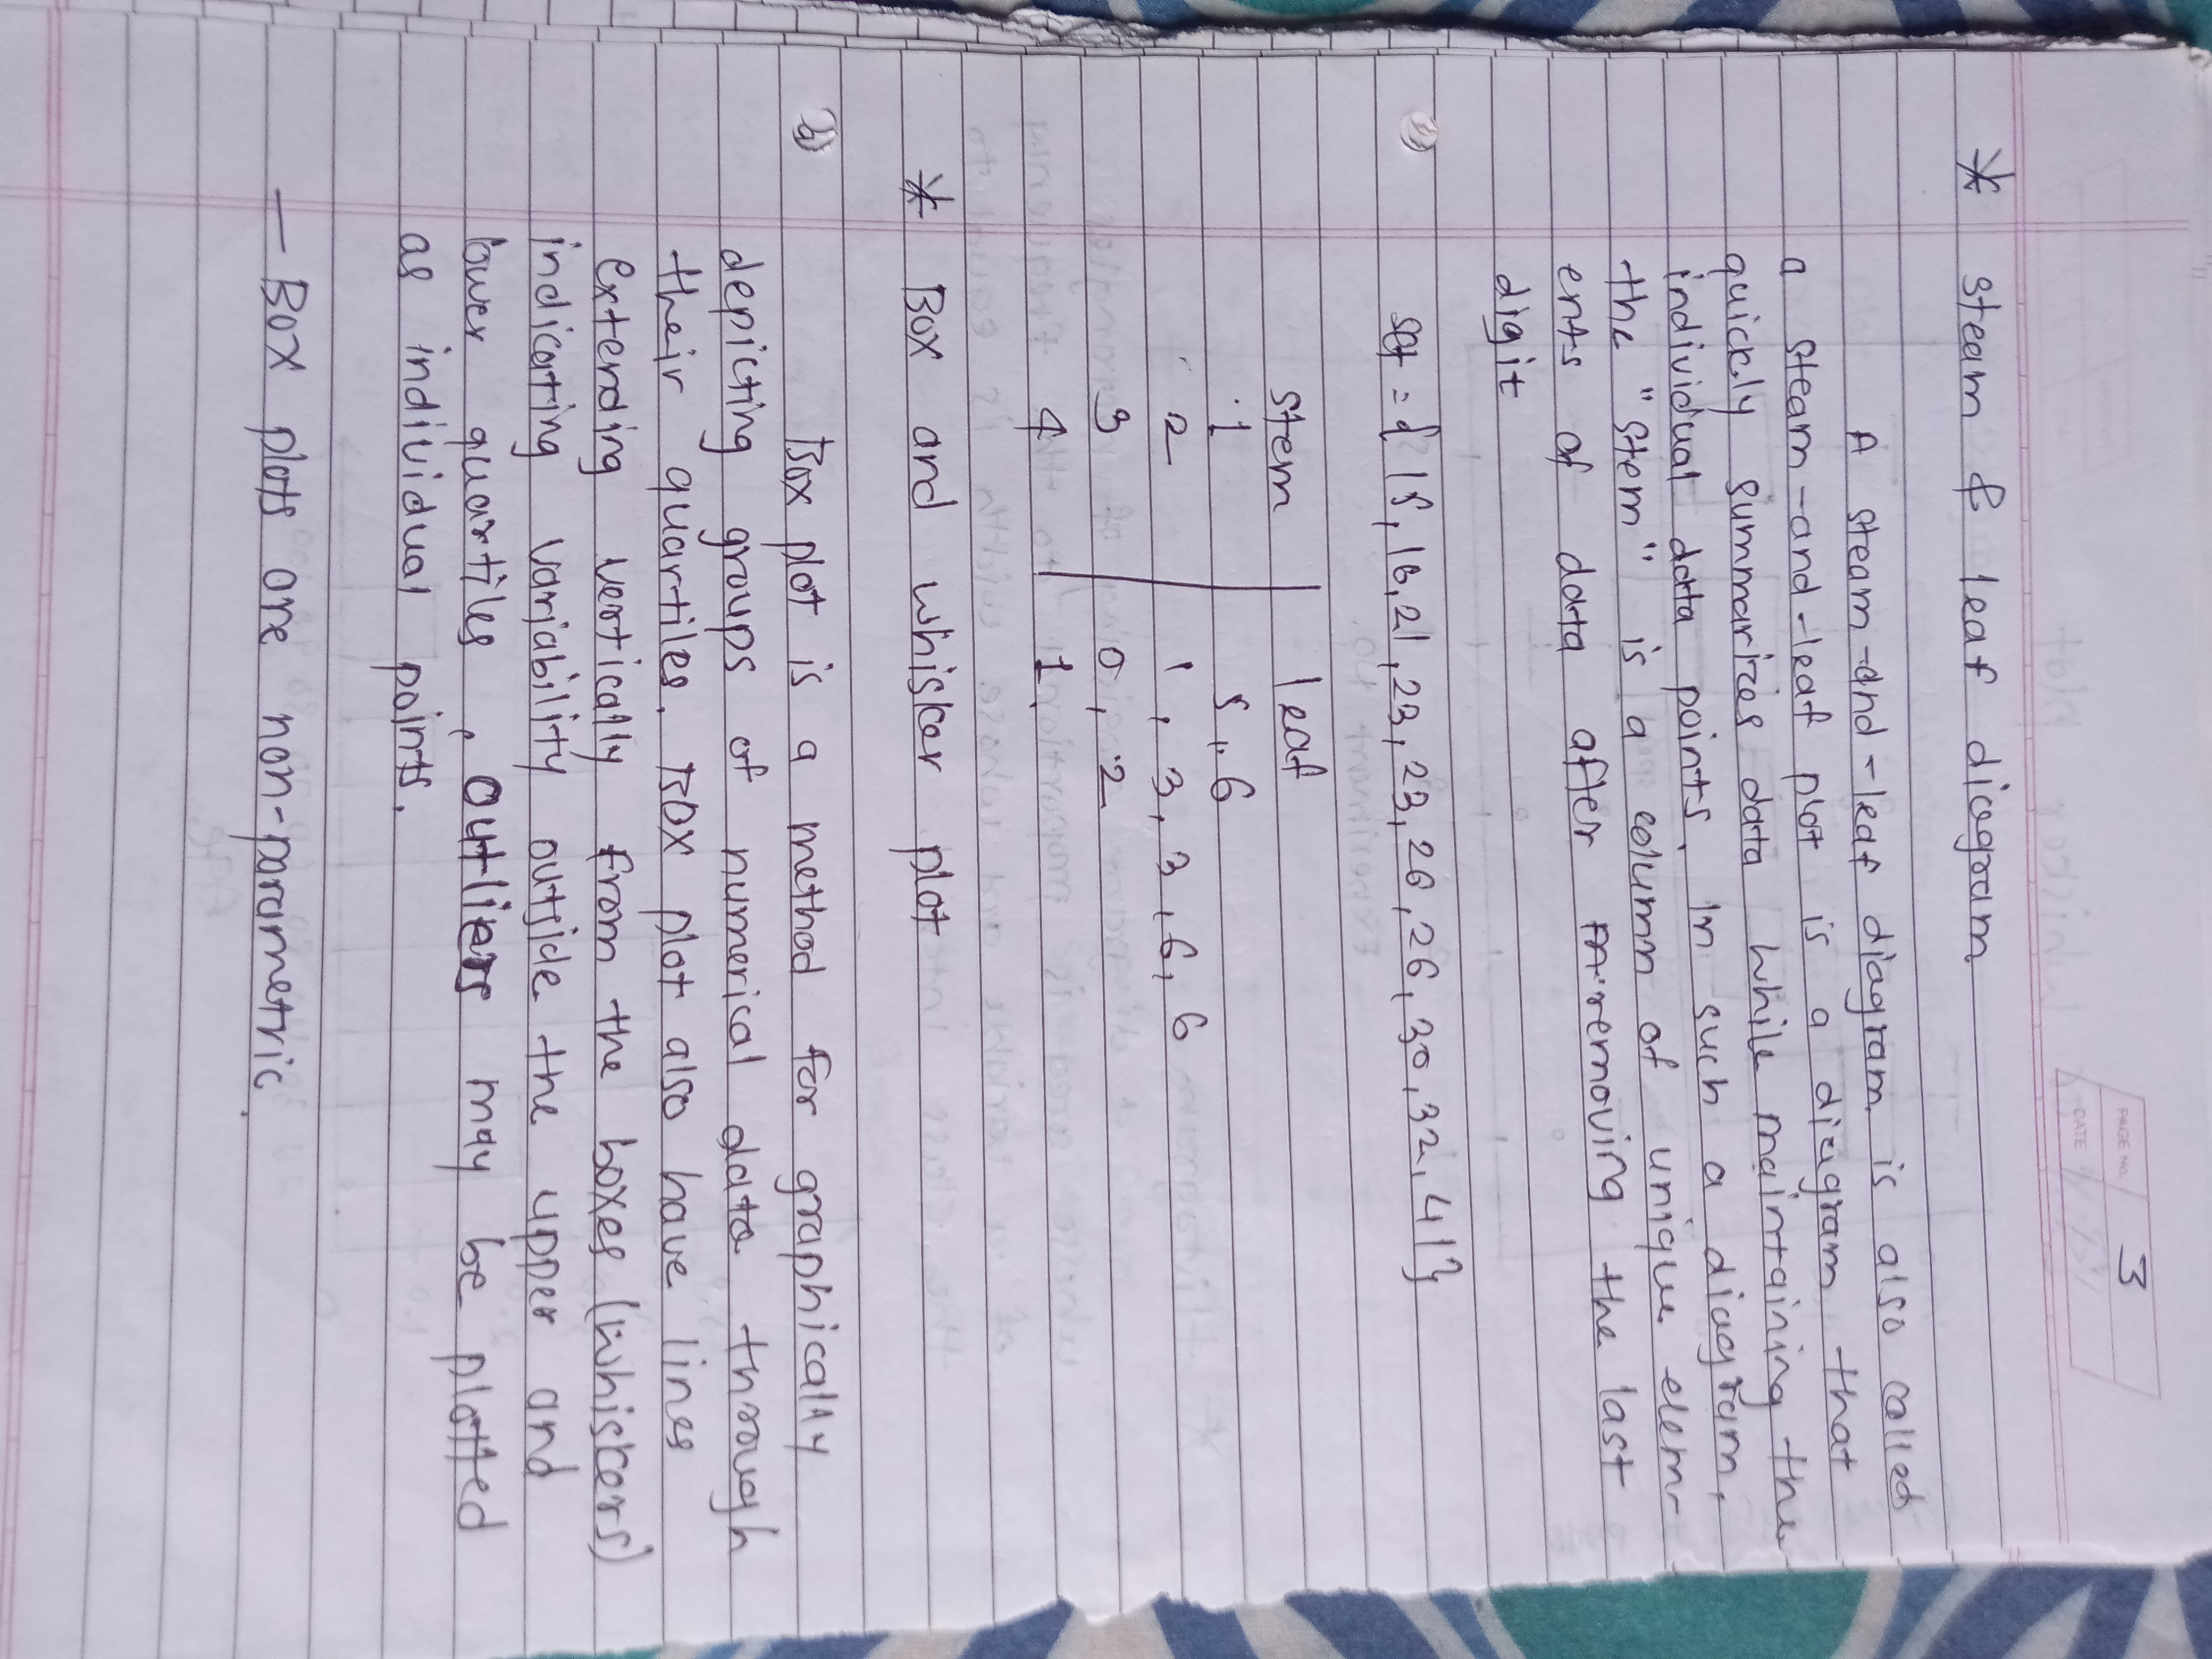 PAGE No. 3
DATE
* steam & leaf diagram
A steam-and-leaf diagram is also called
a steam-and-leaf plot is a diagram that
quickly summarizes data while maintaining the
individual data points. In such a diagram,
the "stem" is a column of unique elem-
ents of data after removing the last
digit
set = { 15, 16, 21, 23, 23, 26, 26, 30, 32, 41}
stem | leaf
1 | 5, 6
2 | 1, 3, 3, 6, 6
3 | 0, 2
4 | 1
* Box and whisker plot
Box plot is a method for graphically
depicting groups of numerical data through
their quartiles. Box plot also have lines
extending vertically from the boxes (whiskers)
indicating variability outside the upper and
lower quartiles, outliers may be plotted
as individual points.
— Box plots are non-parametric.